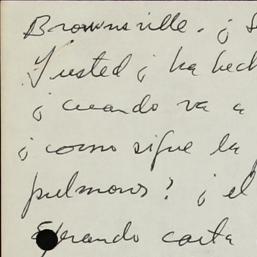 Brownsville. ¿
Y usted ¿ ha hech
¿ cuando va a
¿ como sigue la
pulmons? ¿ el
Esperando carta